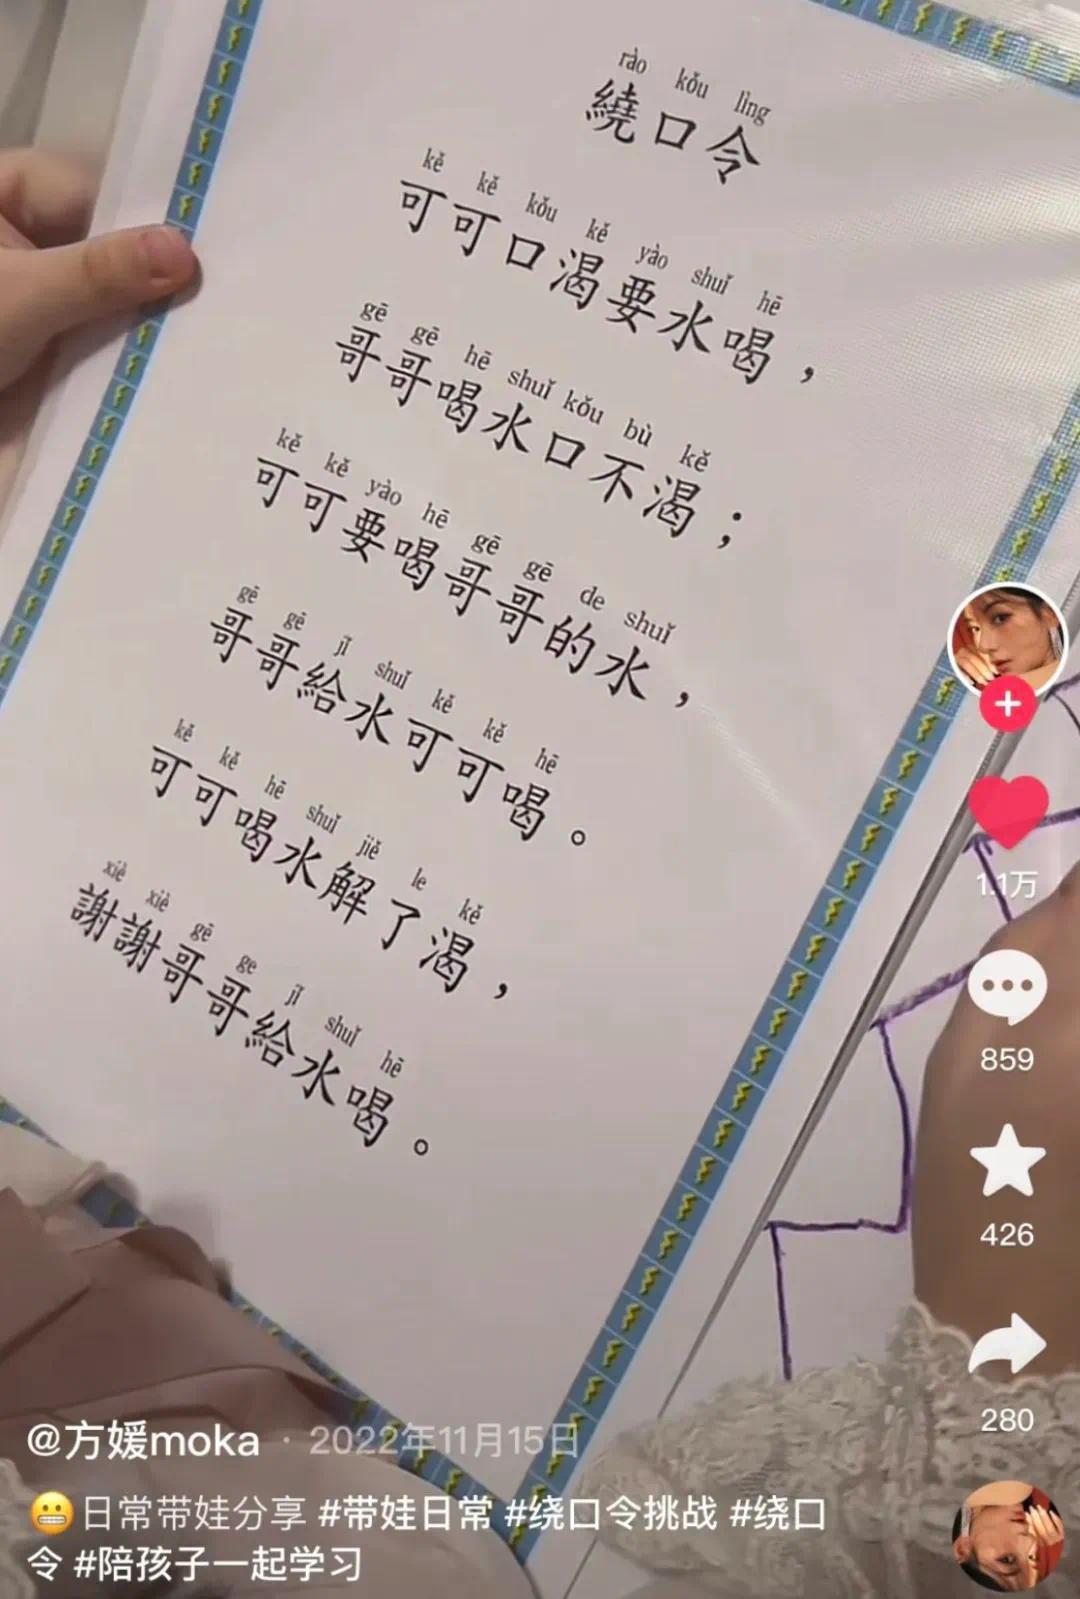 rào kǒu lìng
繞口令
kě kě kǒu kě yào shuǐ hē
可可口渴要水喝，
gē gē hē shuǐ kǒu bù kě
哥哥喝水口不渴；
kě kě yào hē gē gē de shuǐ
可可要喝哥哥的水，
gē gē jǐ shuǐ kě kě hē
哥哥給水可可喝。
kě kě hē shuǐ jiě le kě
可可喝水解了渴，
xiè xiè gē ge jǐ shuǐ hē
謝謝哥哥給水喝。
1.1万
859
426
280
@方媛moka · 2022年11月15日
😬日常带娃分享 #带娃日常 #绕口令挑战 #绕口
令 #陪孩子一起学习